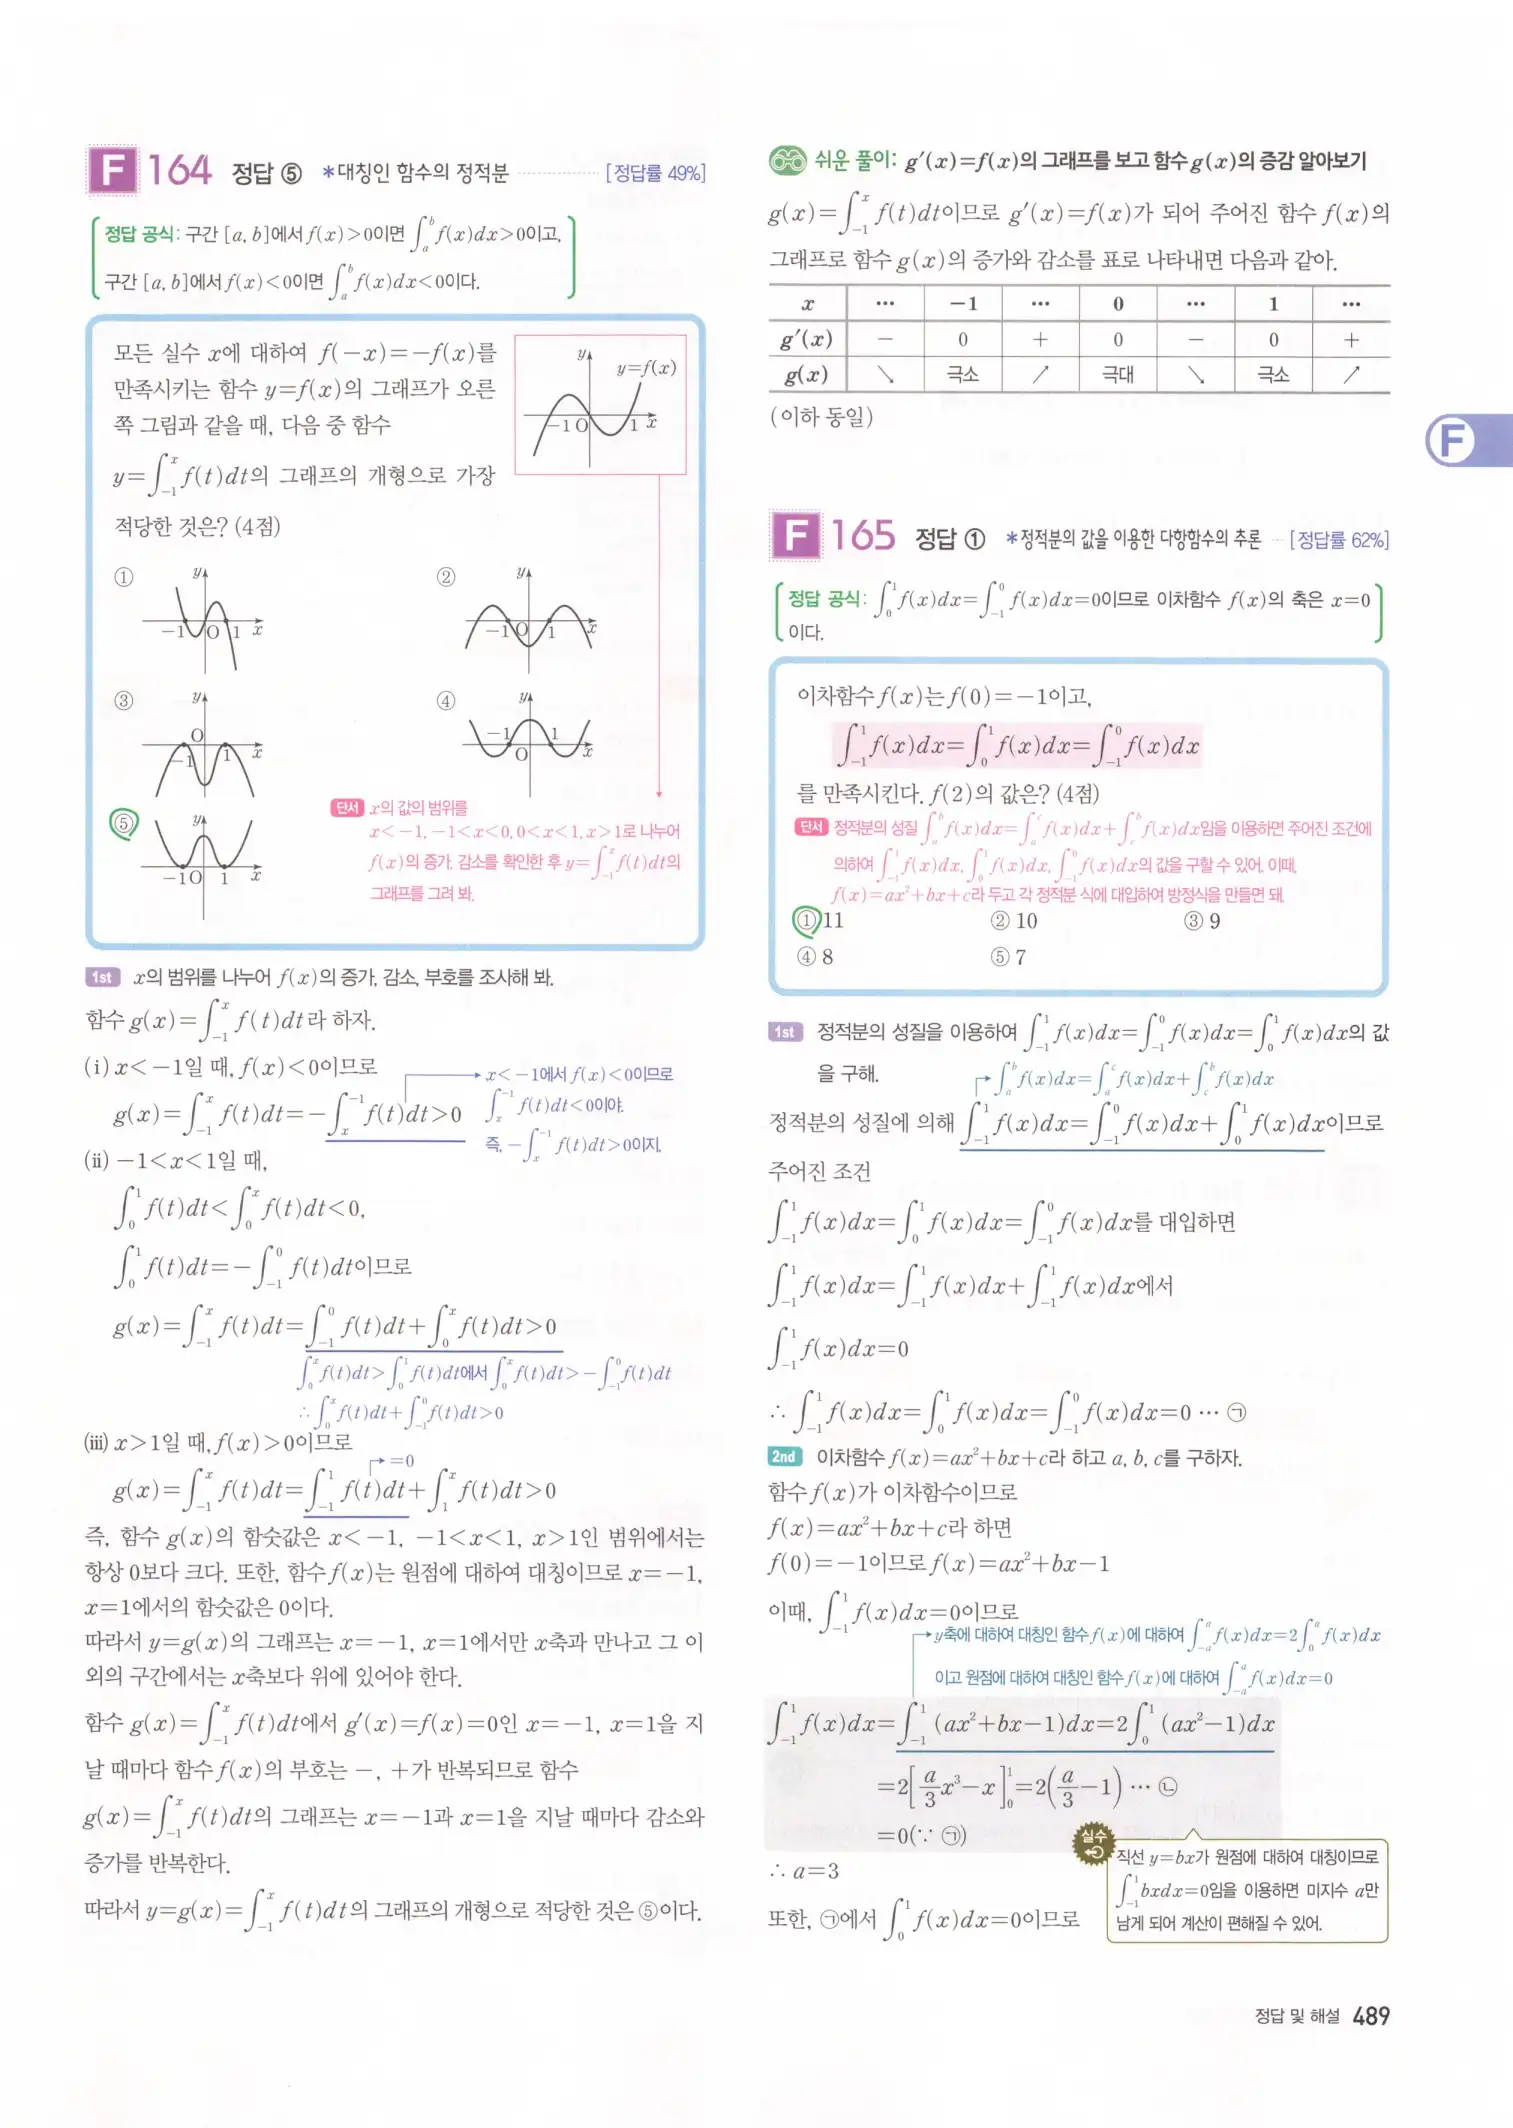 F 164 정답 ⑤ *대칭인 함수의 정적분 [정답률 49%]
정답 공식: 구간 [a, b]에서 f(x)>0이면 ∫_a^b f(x)dx>0이고,
구간 [a, b]에서 f(x)<0이면 ∫_a^b f(x)dx<0이다.
모든 실수 x에 대하여 f(-x)=-f(x)를
만족시키는 함수 y=f(x)의 그래프가 오른
쪽 그림과 같을 때, 다음 중 함수
y=∫_{-1}^x f(t)dt의 그래프의 개형으로 가장
적당한 것은? (4점)
y y=f(x)
-1 O 1 x
① y -1 O 1 x
② y -1 O 1 x
③ y O -1 1 x
④ y -1 1 O x
⑤ y -1 O 1 x
단서 x의 값의 범위를
x<-1, -1<x<0, 0<x<1, x>1로 나누어
f(x)의 증가, 감소를 확인한 후 y=∫_{-1}^x f(t)dt의
그래프를 그려 봐.
1st x의 범위를 나누어 f(x)의 증가, 감소, 부호를 조사해 봐.
함수 g(x)=∫_{-1}^x f(t)dt라 하자.
(i) x<-1일 때, f(x)<0이므로
g(x)=∫_{-1}^x f(t)dt=-∫_x^{-1} f(t)dt>0
x<-1에서 f(x)<0이므로
∫_x^{-1} f(t)dt<0이야.
즉, -∫_x^{-1} f(t)dt>0이지.
(ii) -1<x<1일 때,
∫_0^1 f(t)dt<∫_0^x f(t)dt<0,
∫_0^1 f(t)dt=-∫_{-1}^0 f(t)dt이므로
g(x)=∫_{-1}^x f(t)dt=∫_{-1}^0 f(t)dt+∫_0^x f(t)dt>0
∫_0^x f(t)dt>∫_0^1 f(t)dt에서 ∫_0^x f(t)dt>-∫_{-1}^0 f(t)dt
∴ ∫_0^x f(t)dt+∫_{-1}^0 f(t)dt>0
(iii) x>1일 때, f(x)>0이므로
=0
g(x)=∫_{-1}^x f(t)dt=∫_{-1}^1 f(t)dt+∫_1^x f(t)dt>0
즉, 함수 g(x)의 함숫값은 x<-1, -1<x<1, x>1인 범위에서는
항상 0보다 크다. 또한, 함수 f(x)는 원점에 대하여 대칭이므로 x=-1,
x=1에서의 함숫값은 0이다.
따라서 y=g(x)의 그래프는 x=-1, x=1에서만 x축과 만나고 그 이
외의 구간에서는 x축보다 위에 있어야 한다.
함수 g(x)=∫_{-1}^x f(t)dt에서 g′(x)=f(x)=0인 x=-1, x=1을 지
날 때마다 함수 f(x)의 부호는 -, +가 반복되므로 함수
g(x)=∫_{-1}^x f(t)dt의 그래프는 x=-1과 x=1을 지날 때마다 감소와
증가를 반복한다.
따라서 y=g(x)=∫_{-1}^x f(t)dt의 그래프의 개형으로 적당한 것은 ⑤이다.
쉬운 풀이: g′(x)=f(x)의 그래프를 보고 함수 g(x)의 증감 알아보기
g(x)=∫_{-1}^x f(t)dt이므로 g′(x)=f(x)가 되어 주어진 함수 f(x)의
그래프로 함수 g(x)의 증가와 감소를 표로 나타내면 다음과 같아.
x … -1 … 0 … 1 …
g′(x) - 0 + 0 - 0 +
g(x) ↘ 극소 ↗ 극대 ↘ 극소 ↗
(이하 동일)
F
F 165 정답 ① *정적분의 값을 이용한 다항함수의 추론 [정답률 62%]
정답 공식: ∫_0^1 f(x)dx=∫_{-1}^0 f(x)dx=0이므로 이차함수 f(x)의 축은 x=0
이다.
이차함수 f(x)는 f(0)=-1이고,
∫_{-1}^1 f(x)dx=∫_0^1 f(x)dx=∫_{-1}^0 f(x)dx
를 만족시킨다. f(2)의 값은? (4점)
단서 정적분의 성질 ∫_a^b f(x)dx=∫_a^c f(x)dx+∫_c^b f(x)dx임을 이용하면 주어진 조건에
의하여 ∫_{-1}^1 f(x)dx, ∫_0^1 f(x)dx, ∫_{-1}^0 f(x)dx의 값을 구할 수 있어. 이때,
f(x)=ax²+bx+c라 두고 각 정적분 식에 대입하여 방정식을 만들면 돼.
① 11 ② 10 ③ 9
④ 8 ⑤ 7
1st 정적분의 성질을 이용하여 ∫_{-1}^1 f(x)dx=∫_{-1}^0 f(x)dx=∫_0^1 f(x)dx의 값
을 구해.
∫_a^b f(x)dx=∫_a^c f(x)dx+∫_c^b f(x)dx
정적분의 성질에 의해 ∫_{-1}^1 f(x)dx=∫_{-1}^0 f(x)dx+∫_0^1 f(x)dx이므로
주어진 조건
∫_{-1}^1 f(x)dx=∫_0^1 f(x)dx=∫_{-1}^0 f(x)dx를 대입하면
∫_{-1}^1 f(x)dx=∫_{-1}^1 f(x)dx+∫_{-1}^1 f(x)dx에서
∫_{-1}^1 f(x)dx=0
∴ ∫_{-1}^1 f(x)dx=∫_0^1 f(x)dx=∫_{-1}^0 f(x)dx=0 … ㉠
2nd 이차함수 f(x)=ax²+bx+c라 하고 a, b, c를 구하자.
함수 f(x)가 이차함수이므로
f(x)=ax²+bx+c라 하면
f(0)=-1이므로 f(x)=ax²+bx-1
이때, ∫_{-1}^1 f(x)dx=0이므로
y축에 대하여 대칭인 함수 f(x)에 대하여 ∫_{-a}^a f(x)dx=2∫_0^a f(x)dx
이고 원점에 대하여 대칭인 함수 f(x)에 대하여 ∫_{-a}^a f(x)dx=0
∫_{-1}^1 f(x)dx=∫_{-1}^1 (ax²+bx-1)dx=2∫_0^1 (ax²-1)dx
=2[a/3 x³-x]_0^1=2(a/3-1) … ㉡
=0(∵ ㉠)
∴ a=3
또한, ㉠에서 ∫_0^1 f(x)dx=0이므로
실수
직선 y=bx가 원점에 대하여 대칭이므로
∫_{-1}^1 bxdx=0임을 이용하면 미지수 a만
남게 되어 계산이 편해질 수 있어.
정답 및 해설 489